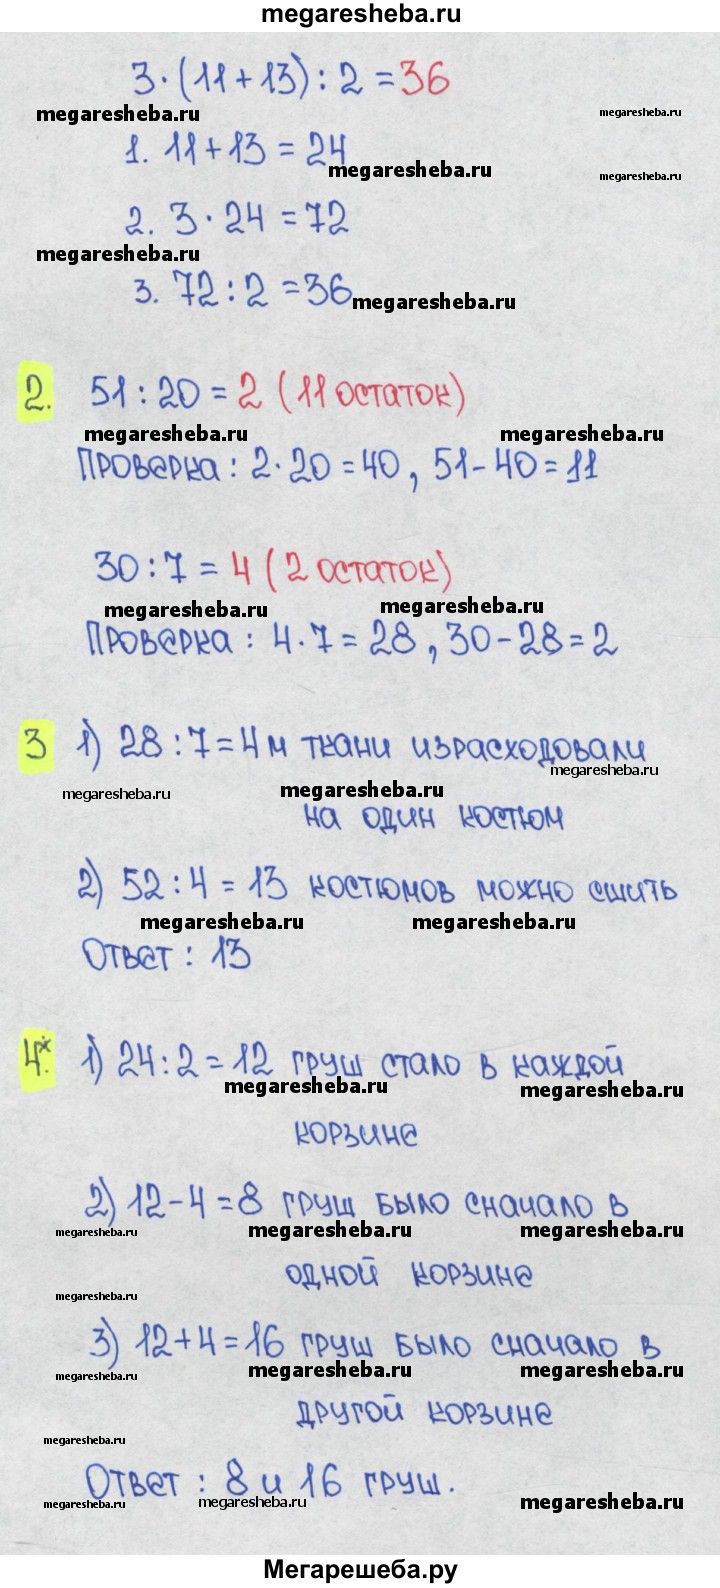 megaresheba.ru
3·(11+13):2=36
megaresheba.ru
megaresheba.ru
1. 11+13=24
megaresheba.ru
megaresheba.ru
2. 3·24=72
megaresheba.ru
3. 72:2=36
megaresheba.ru
2. 51:20=2 (11 остаток)
megaresheba.ru megaresheba.ru
Проверка: 2·20=40, 51-40=11
30:7=4 (2 остаток)
megaresheba.ru megaresheba.ru
Проверка: 4·7=28, 30-28=2
3 1) 28:7=4м ткани израсходовали
megaresheba.ru
megaresheba.ru megaresheba.ru
на один костюм
2) 52:4=13 костюмов можно сшить
megaresheba.ru megaresheba.ru
Ответ: 13
4.* 1) 24:2=12 груш стало в каждой
megaresheba.ru megaresheba.ru
корзине
2) 12-4=8 груш было сначало в
megaresheba.ru megaresheba.ru megaresheba.ru
одной корзине
megaresheba.ru
3) 12+4=16 груш было сначало в
megaresheba.ru megaresheba.ru megaresheba.ru
другой корзине
megaresheba.ru
Ответ: 8 и 16 груш.
megaresheba.ru megaresheba.ru megaresheba.ru
Мегарешеба.ру